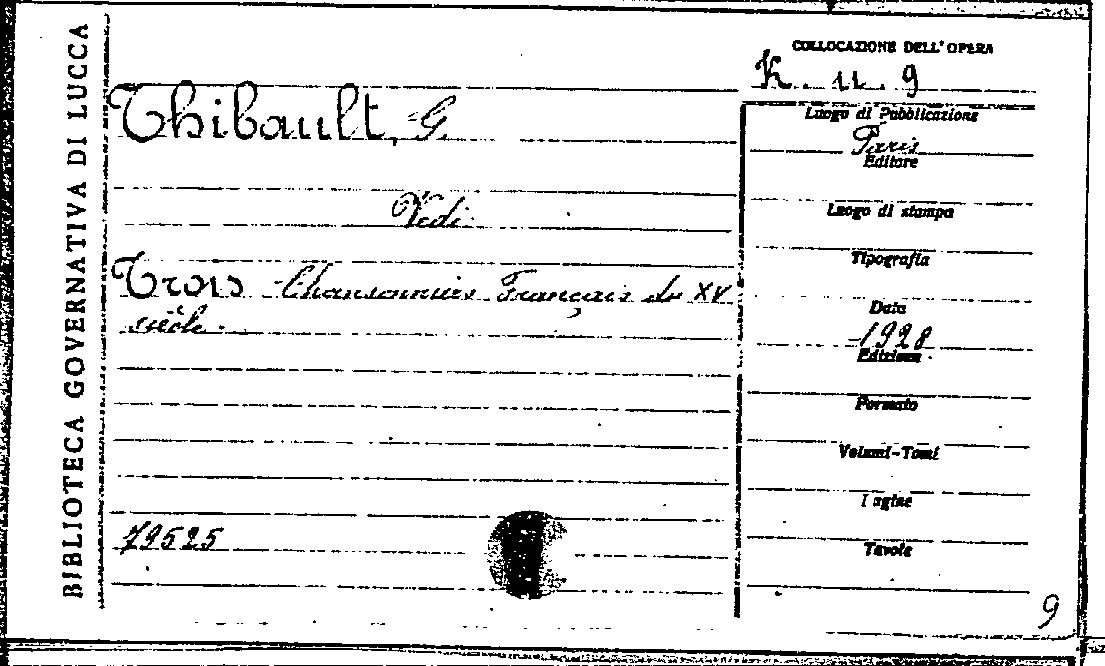 BIBLIOTECA GOVERNATIVA DI LUCCA
Thibault, G.
Vedi
Trois Chansonniers Français du XV
siècle.
79525
COLLOCAZIONE DELL'OPERA
K. u. 9
Luogo di Pubblicazione
Paris
Editore
Luogo di stampa
Tipografia
Data
1928
Edizione
Formato
Volumi-Tomi
Pagine
Tavole
9